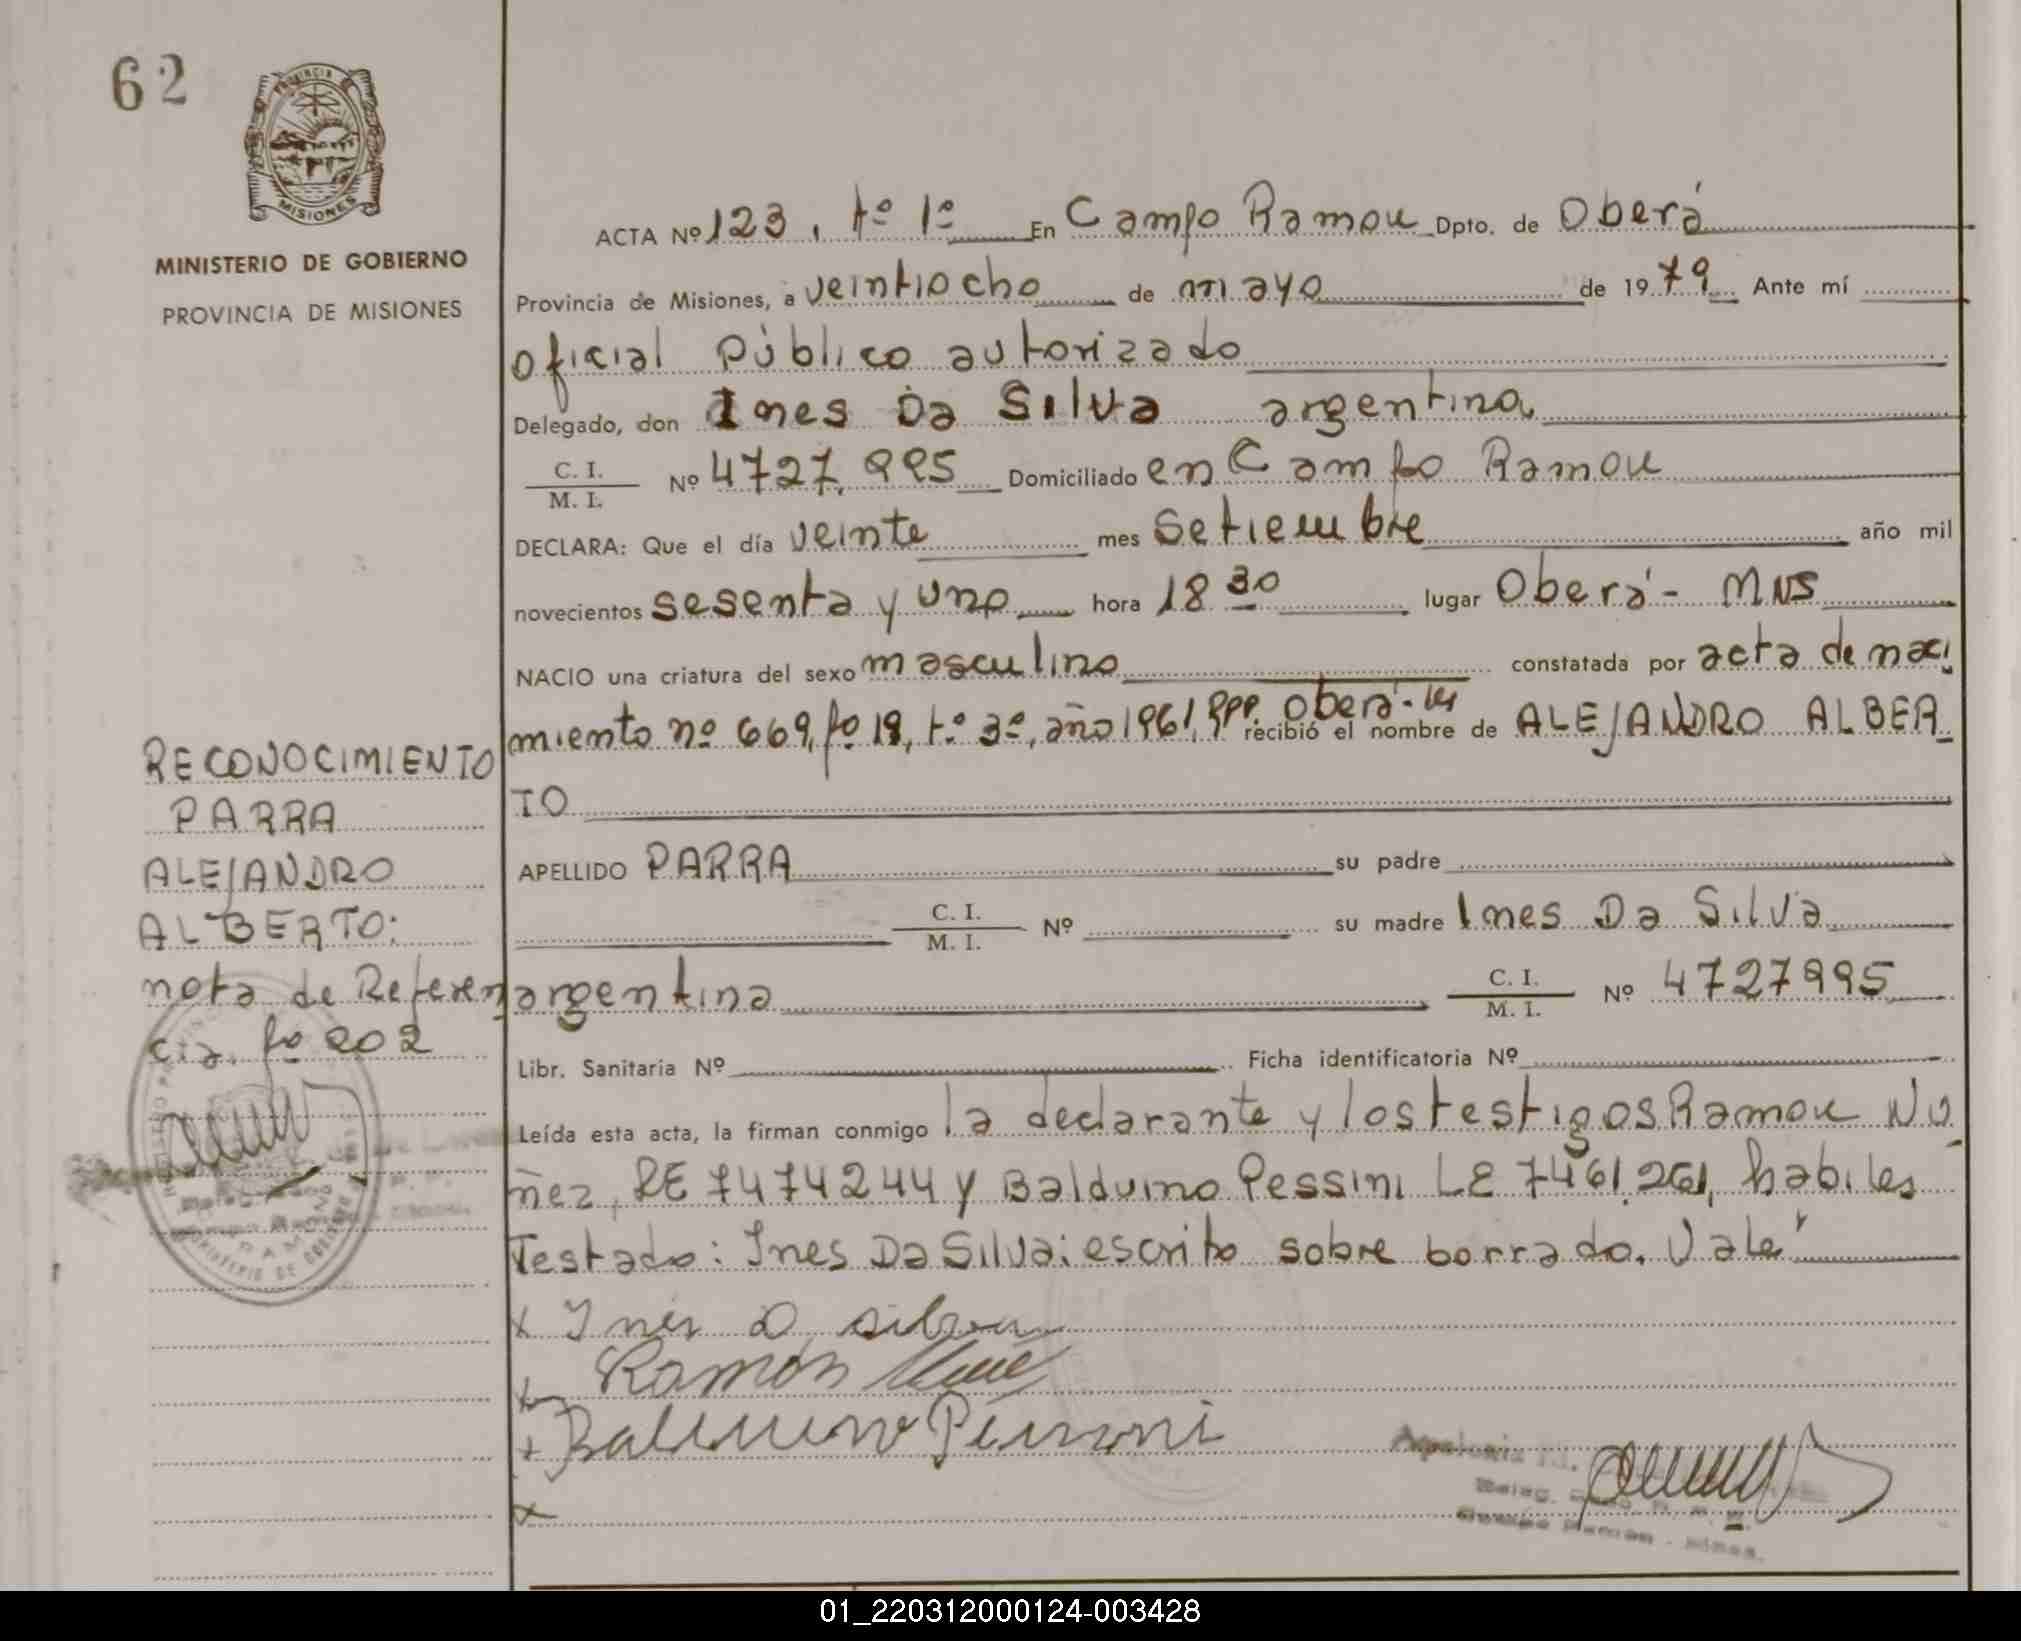 62
PROVINCIA
MISIONES
MINISTERIO DE GOBIERNO
PROVINCIA DE MISIONES
ACTA Nº 123, tº 1º En Campo Ramon Dpto. de Oberá
Provincia de Misiones, a veintiocho de mayo de 1979 Ante mí
oficial público autorizado
Delegado, don Ines Da Silva argentina
C. I.
M. I. Nº 4727.995 Domiciliado en Campo Ramon
DECLARA: Que el día veinte mes Setiembre año mil
novecientos sesenta y uno hora 18 30 lugar Oberá - MNS
NACIO una criatura del sexo masculino constatada por acta de naci
miento nº 669, fº 19, tº 3º, año 1961, RPP. Oberá- recibió el nombre de ALEJANDRO ALBER_
TO
APELLIDO PARRA su padre
C. I.
M. I. Nº su madre Ines Da Silva
argentina C. I.
M. I. Nº 4727995
Libr. Sanitaria Nº Ficha identificatoria Nº
Leída esta acta, la firman conmigo la declarante y los testigos Ramon Nu_
ñez, RE 7474244 y Balduino Pessini LE 7461.261, habiles
Testado: Ines Da Silva: escrito sobre borrado. Vale
x Ines D silva
Ramón
Pessini
RECONOCIMIENTO
PARRA
ALEJANDRO
ALBERTO:
nota de Referen
cia. fº 202
Campo Ramon - Mnes.
01_220312000124-003428